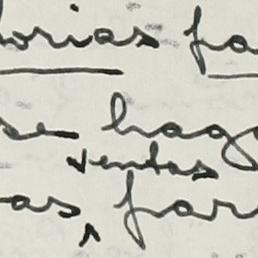 orias fa
se haga
ventas
as, far